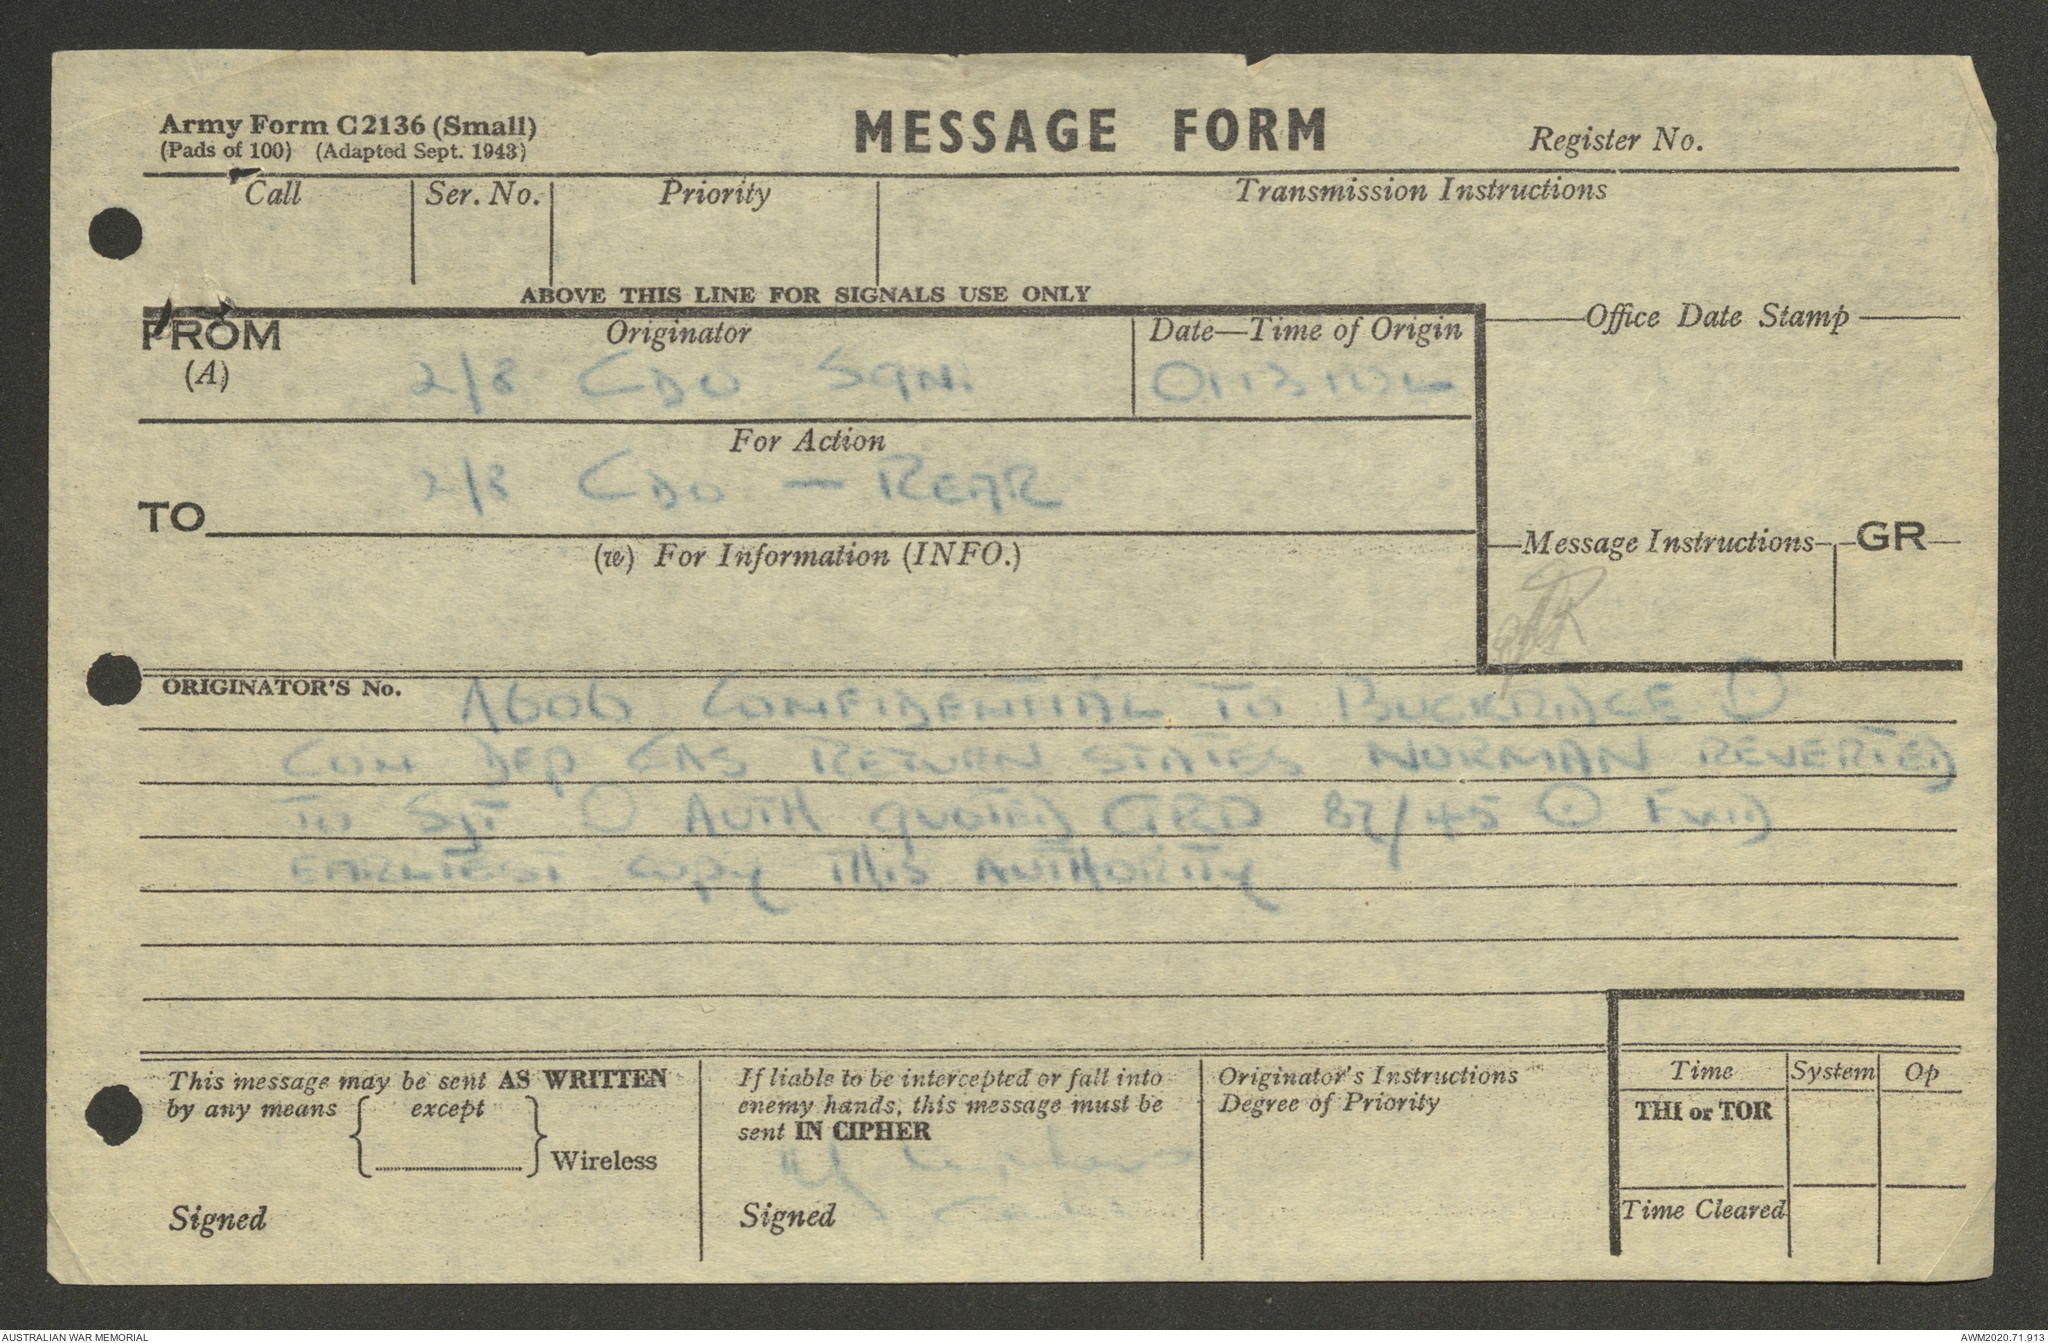 Army Form C2136 (Small)
(Pads of 100) (Adapted Sept. 1943)
MESSAGE FORM
Register No.
Call
Ser. No.
Priority
Transmission Instructions
ABOVE THIS LINE FOR SIGNALS USE ONLY
FROM
(A)
Originator
2/8 CDO SQN.
Date—Time of Origin
Office Date Stamp
For Action
2/8 CDO — REAR
TO
(w) For Information (INFO.)
Message Instructions
GR
ORIGINATOR'S No.
A606 CONFIDENTIAL TO BUCKRIDGE ⊙
CON DEP CAS RETURN STATES NORMAN REVERTED
TO SJT ⊙ AUTH QUOTED GRO 87/45 ⊙ FWD
EARLIEST COPY THIS AUTHORITY
This message may be sent AS WRITTEN
by any means { except } Wireless
Signed
If liable to be intercepted or fall into
enemy hands, this message must be
sent IN CIPHER
Signed
Originator's Instructions
Degree of Priority
Time
System
Op
THI or TOR
Time Cleared
AUSTRALIAN WAR MEMORIAL
AWM2020.71.913